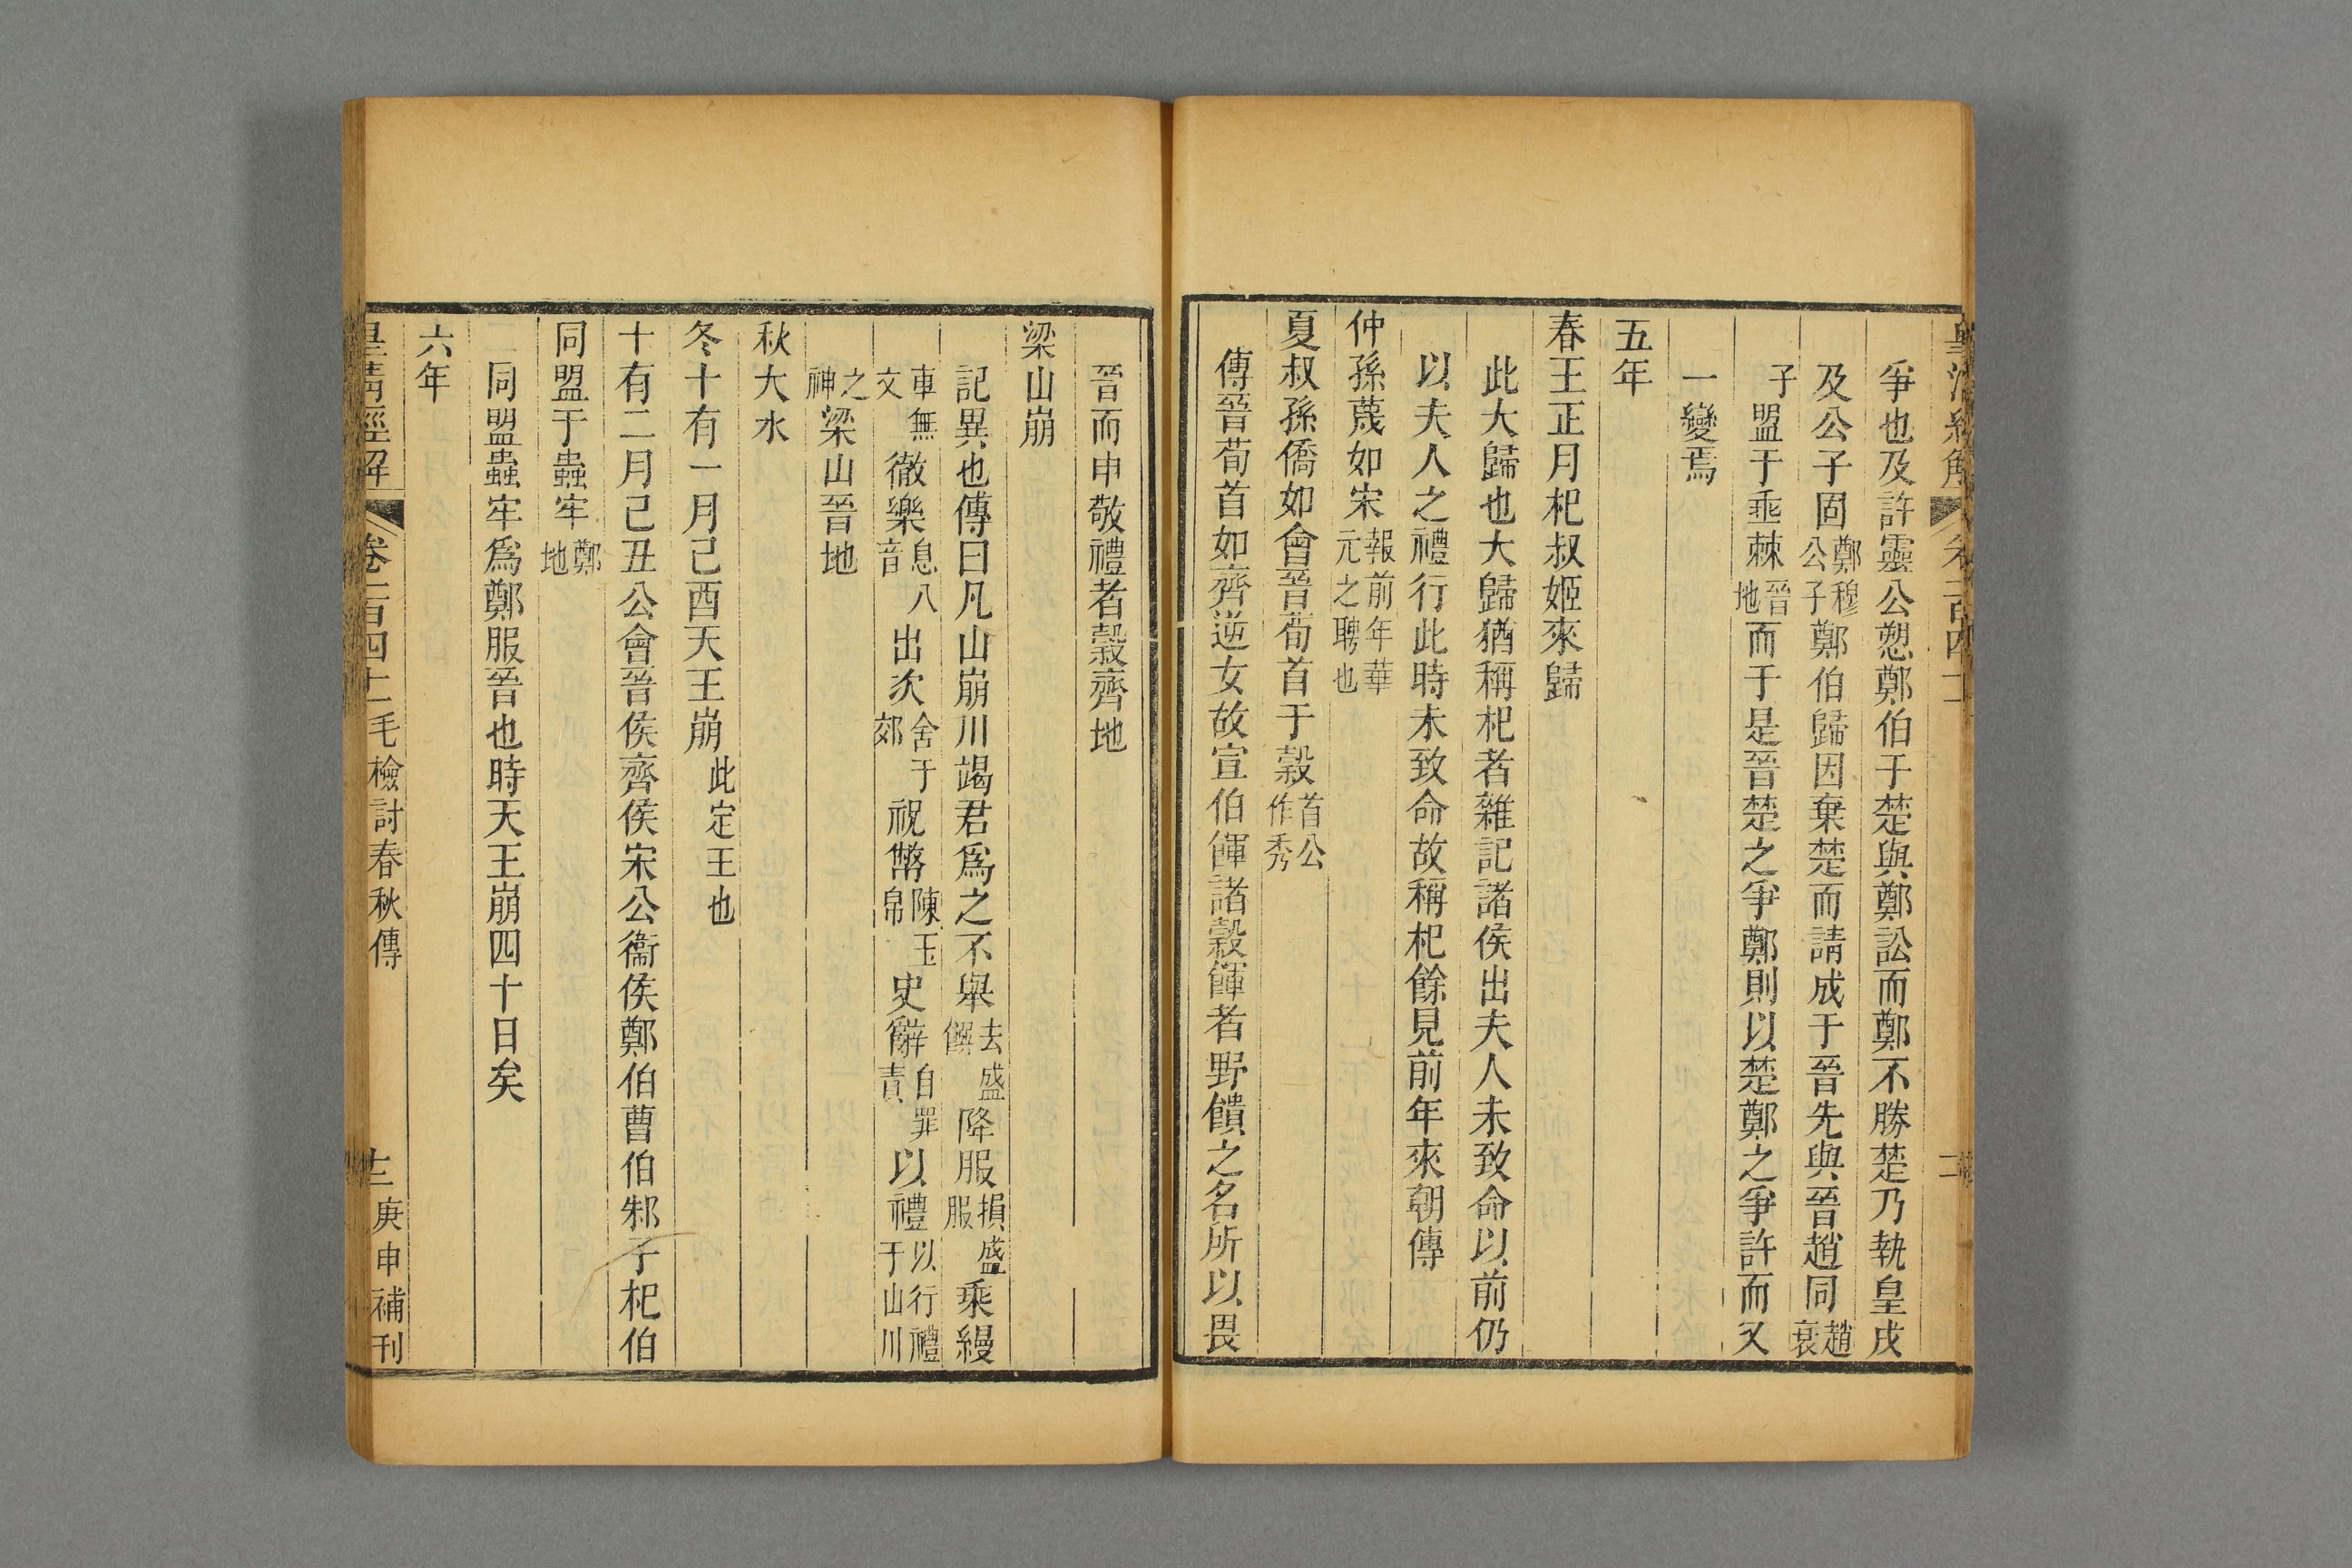 爭也及許靈公愬鄭伯于楚與鄭訟而鄭不勝楚乃執皇戌
及公子固鄭穆公子鄭伯歸因棄楚而請成于晉先與晉趙同趙衰
子盟于垂棘晉地而于是晉楚之爭鄭則以楚鄭之爭許而又
一變焉
五年
春王正月杞叔姬來歸
此大歸也大歸猶稱杞者雜記諸侯出夫人未致命以前仍
以夫人之禮行此時未致命故稱杞餘見前年來朝傳
仲孫蔑如宋報前年華元之聘也
夏叔孫僑如會晉荀首于穀首公作秀
傳晉荀首如齊逆女故宣伯餫諸穀餫者野饋之名所以畏
晉而申敬禮者穀齊地
梁山崩
記異也傳曰凡山崩川竭君爲之不舉去盛饌降服損盛服乘縵
車無文徹樂息八音出次舍于郊祝幣陳玉帛史辭自罪責以禮以行禮于山川
之神梁山晉地
秋大水
冬十有一月己酉天王崩此定王也
十有二月己丑公會晉侯齊侯宋公衞侯鄭伯曹伯邾子杞伯
同盟于蟲牢鄭地
同盟蟲牢爲鄭服晉也時天王崩四十日矣
六年
皇清經解 卷一百四十二毛檢討春秋傳 十三 庚申補刊